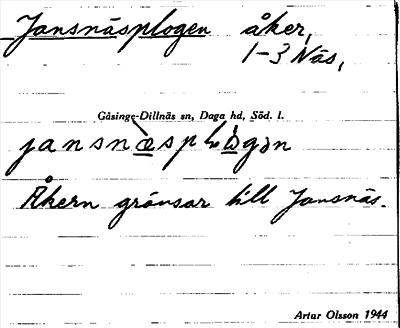 Jansnäsplogen åker,
1-3 Näs,
Gåsinge-Dillnäs sn, Daga hd, Söd. l.
Åkern gränsar till Jansnäs.
Artur Olsson 1944